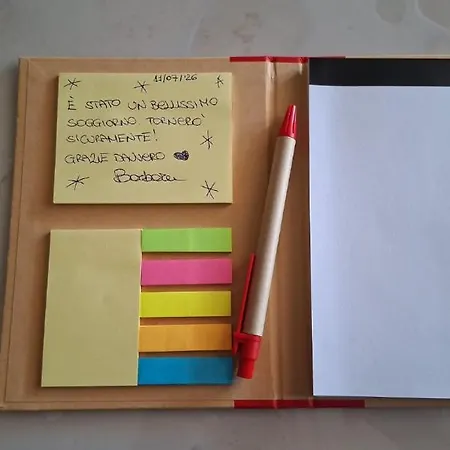 11/07/'26
È STATO UN BELLISSIMO
SOGGIORNO TORNERÒ
SICURAMENTE!
GRAZIE DAVVERO
Barbara